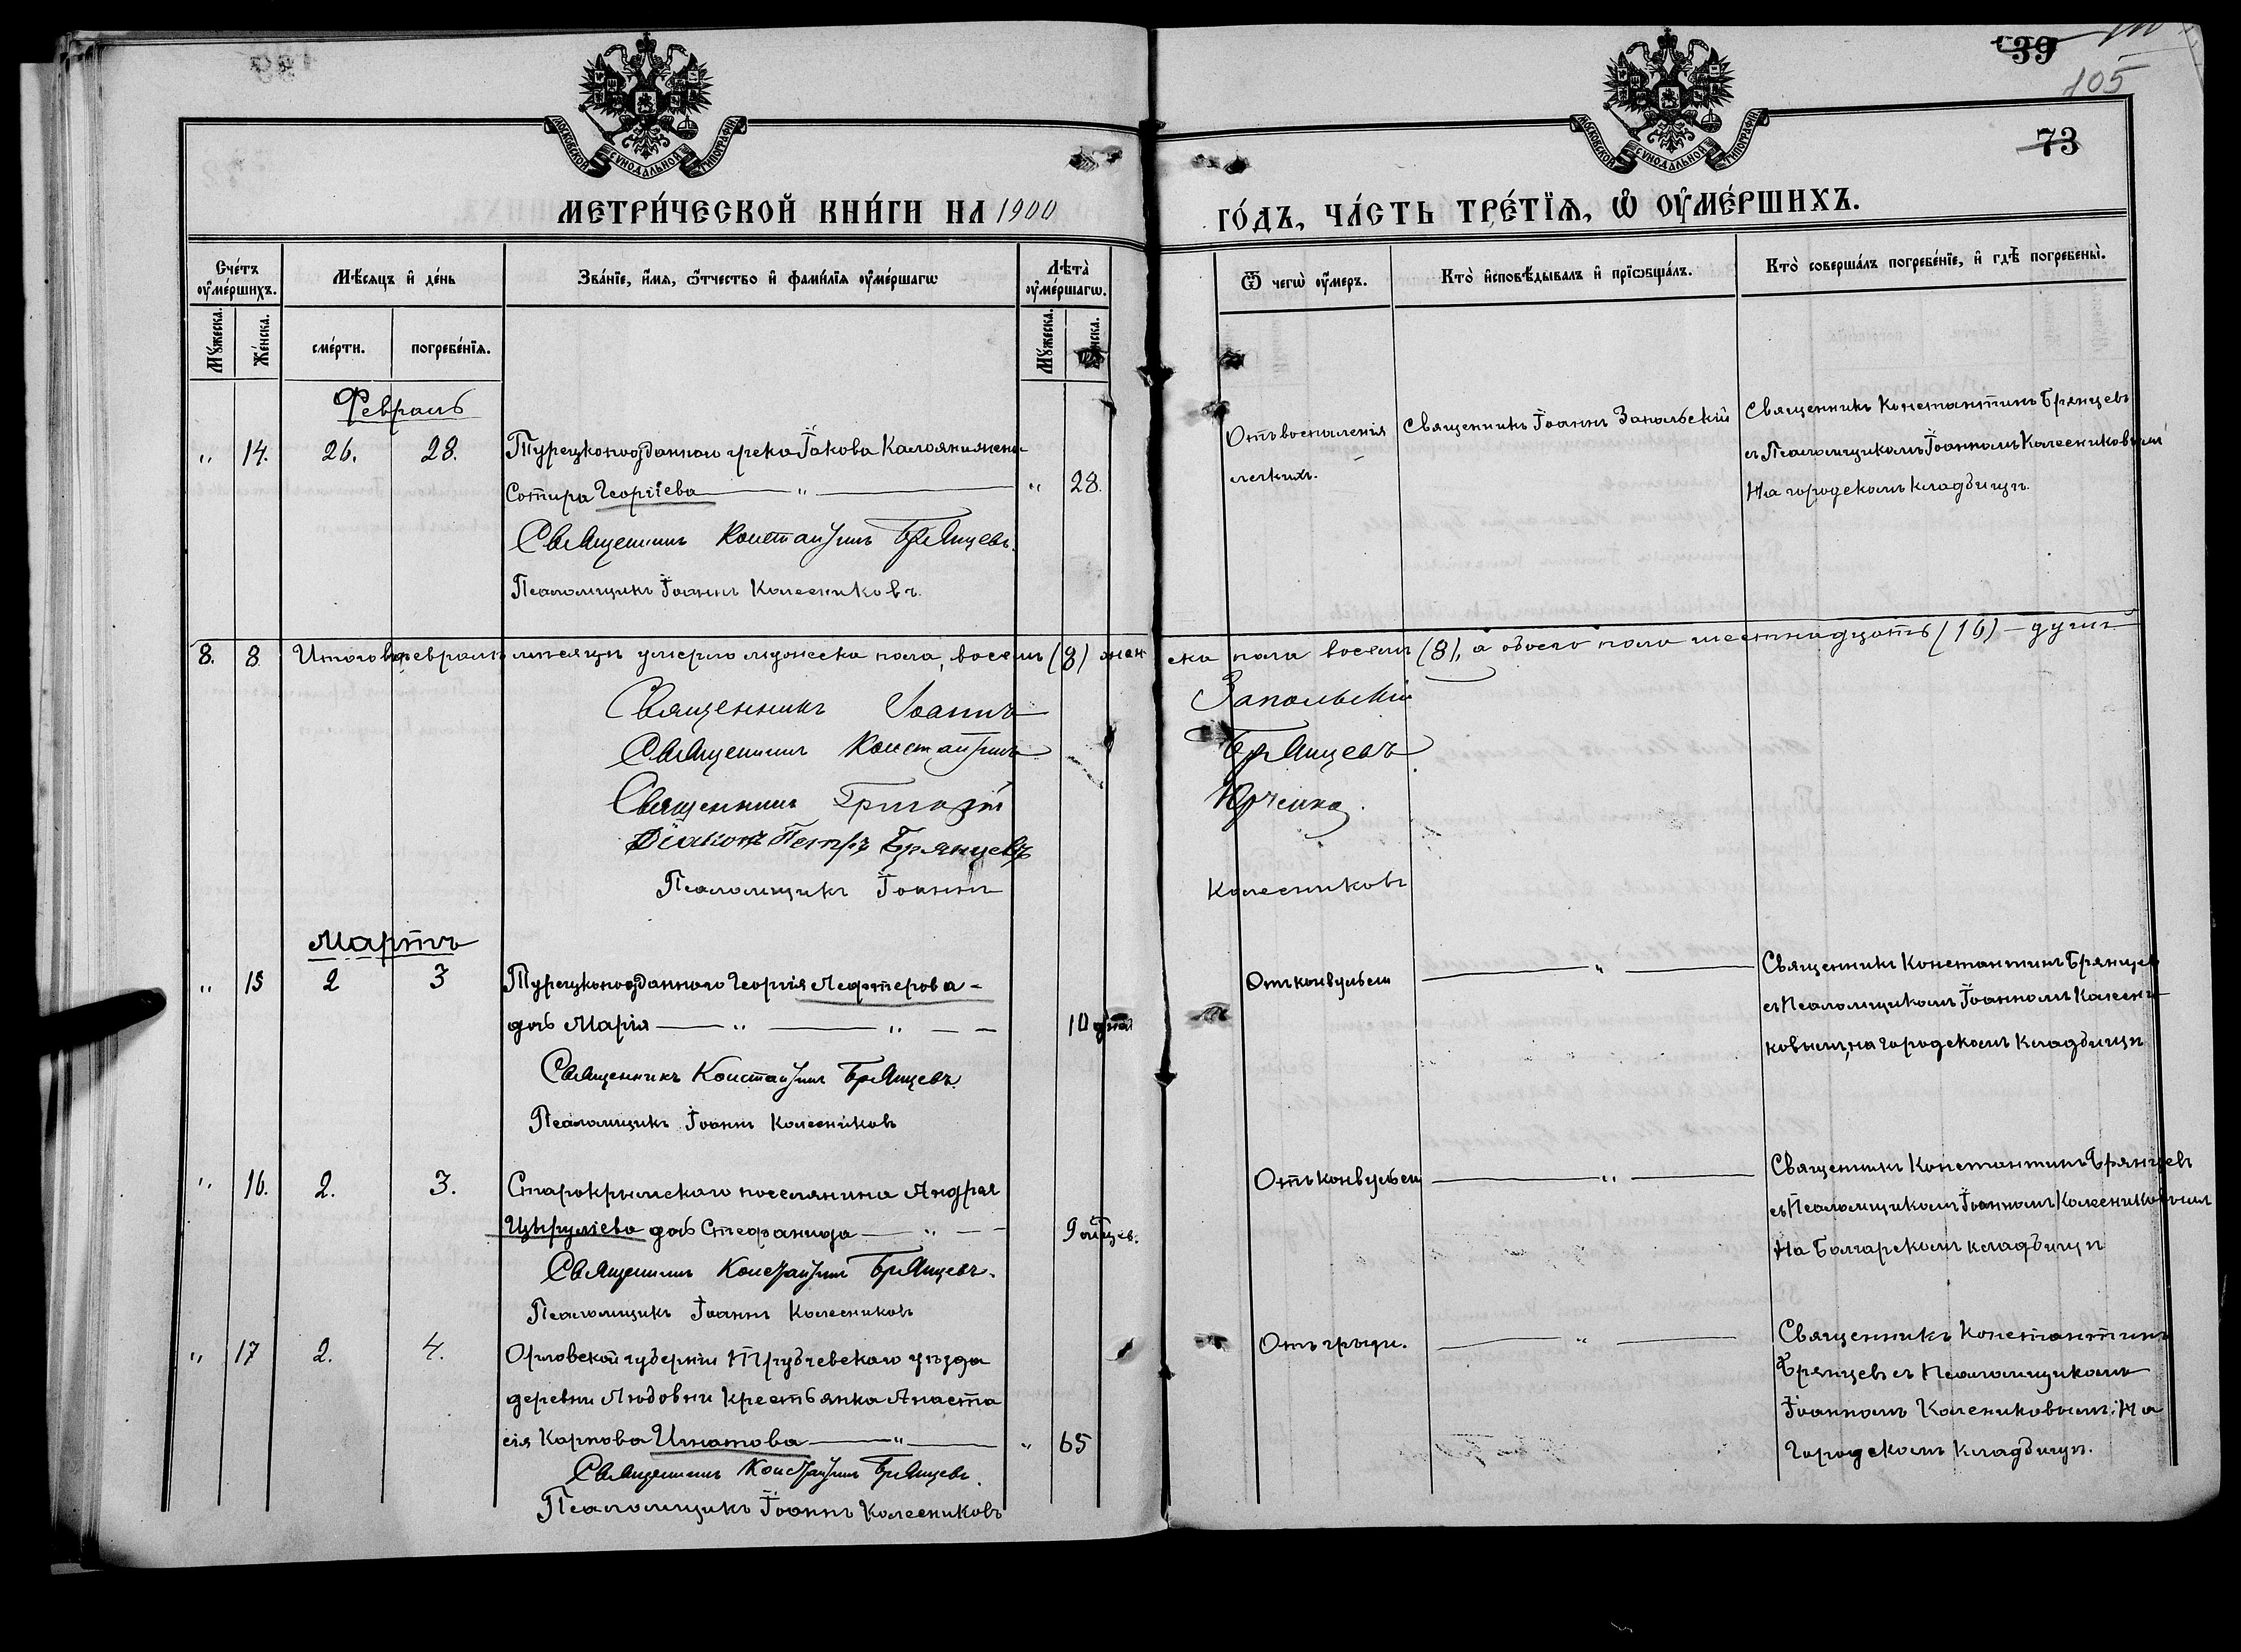 39
105
73
МОСКОВСКОЙ СѴНОДАЛЬНОЙ ТИПОГРАФІИ
МОСКОВСКОЙ СѴНОДАЛЬНОЙ ТИПОГРАФІИ
МЕТРИ́ЧЕСКОЙ КНИ́ГИ НА 1900
ГО́ДЪ, ЧА́СТЬ ТРЕ́ТЇѦ, Ѡ҆ ОУ҆МЕ́РШИХЪ.
Сче́тъ оу҆ме́ршихъ.
Мѣ́сяцъ и҆ де́нь
Зва́нїе, и҆́мя, ѻ҆́тчество и҆ фами́лїя оу҆ме́ршагѡ
Лѣ́та оу҆ме́ршагѡ.
Ѿ чегѡ̀ оу҆́меръ.
Кто̀ и҆сповѣ́дывалъ и҆ прїѡбща́лъ.
Кто̀ соверша́лъ погребе́нїе, и҆ гдѣ̀ погребены̀.
Му́жеска.
Же́нска.
сме́рти.
погребе́нїя.
Му́жеска.
Февраль
" 14. 26. 28. Турецкоподданного грека Іакова Калояни жена
Сотира Георгіева " 28.
Священникъ Константинъ Брянцевъ.
Псаломщикъ Іоаннъ Колесниковъ.
Отъ воспаленія
легкихъ.
Священникъ Іоаннъ Запольскій
Священникъ Константинъ Брянцевъ
съ Псаломщикомъ Іоанномъ Колесниковымъ
На городскомъ кладбищѣ.
8. 8 Итого въ февралѣ мѣсяцѣ умерло мужеска пола, восемь (8) жен
ска пола восемь (8), а обоего пола шестнадцать (16) – душъ
Священникъ Іоаннъ Запольскій
Священникъ Константинъ Брянцевъ
Священникъ Григорій Юрченко.
Діаконъ Петръ Брянцевъ
Псаломщикъ Іоаннъ Колесниковъ
Мартъ
" 15 2 3 Турецкоподданного Георгія Лефтерова -
дочь Марія " " 10 дней
Священникъ Константинъ Брянцевъ.
Псаломщикъ Іоаннъ Колесниковъ
Отъ конвульсіи
"
Священникъ Константинъ Брянцев
съ Псаломщикомъ Іоанномъ Колесни-
ковымъ, на городскомъ кладбищѣ
" 16. 2. 3. Старокрымскаго поселянина Андрея
Цырулiева дочь Стефанида " 9 мѣсяцев.
Священникъ Константинъ Брянцевъ.
Псаломщикъ Іоаннъ Колесниковъ
Отъ конвульсіи
"
Священникъ Константинъ Брянцевъ
съ Псаломщикомъ Іоанномъ Колесниковымъ
На Болгарскомъ кладбищѣ
" 17 2. 4. Орловской губерніи Трубчевскаго уѣзда
деревни Любовни крестьянка Анаста
сія Карпова Игнатова " " 65
Священникъ Константинъ Брянцевъ.
Псаломщикъ Іоаннъ Колесниковъ
Отъ грыжи.
"
Священникъ Константинъ
Брянцевъ съ Псаломщикомъ
Іоанномъ Колесниковымъ. На
Городскомъ кладбищѣ.